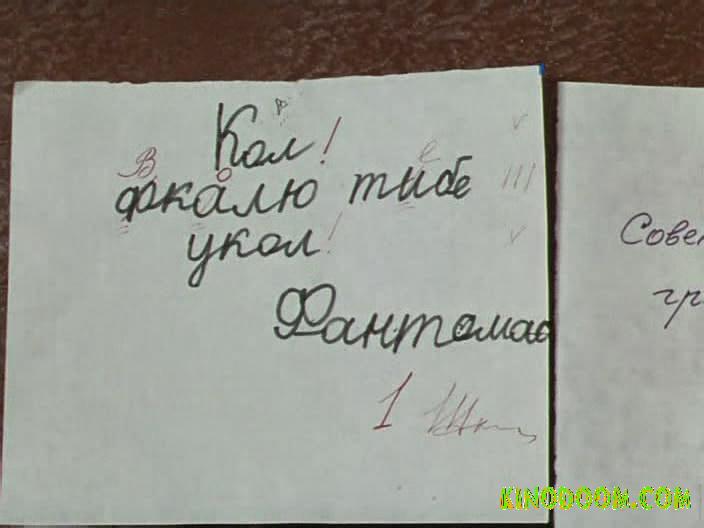 Кол!
В о е
фкалю тибе
V
III
V
укол!
Фантомас
1
Сове
гр
KINODOOM.COM